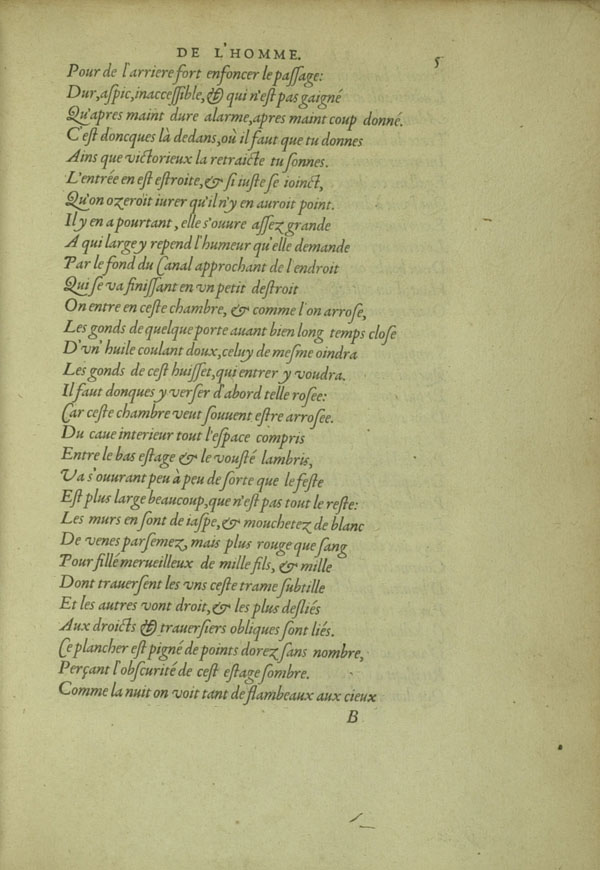 DE L'HOMME. 5
Pour de l'arriere fort enfoncer le paſſage:
Dur, aſpic, inacceſſible, & qui n'eſt pas gaigné
Qu'apres maint dure alarme, apres maint coup donné.
C'eſt doncques là dedans, où il faut que tu donnes
Ains que victorieux la retraicte tu ſonnes.
L'entrée en eſt eſtroite, & ſi iuſte ſe ioinct,
Qu'on ozeroit iurer qu'il n'y en auroit point.
Il y en a pourtant, elle s'ouure aſſez grande
A qui large y repend l'humeur qu'elle demande
Par le fond du Canal approchant de l'endroit
Qui ſe va finiſſant en vn petit deſtroit
On entre en ceſte chambre, & comme l'on arroſe,
Les gonds de quelque porte auant bien long temps cloſe
D'vn' huile coulant doux, celuy de meſme oindra
Les gonds de ceſt huiſſet, qui entrer y voudra.
Il faut donques y verſer d'abord telle roſee:
Car ceſte chambre veut ſouuent eſtre arroſee.
Du caue interieur tout l'eſpace compris
Entre le bas eſtage & le vouſté lambris,
Va s'ouurant peu à peu de ſorte que le feſte
Eſt plus large beaucoup, que n'eſt pas tout le reſte:
Les murs en ſont de iaſpe, & mouchetez de blanc
De venes parſemez, mais plus rouge que ſang
Pour fillé merueilleux de mille fils, & mille
Dont trauerſent les vns ceſte trame ſubtille
Et les autres vont droit, & les plus deſliés
Aux droicts & trauerſiers obliques ſont liés.
Ce plancher eſt pigné de points dorez ſans nombre,
Perçant l'obſcurité de ceſt eſtage ſombre.
Comme la nuit on voit tant de flambeaux aux cieux
B